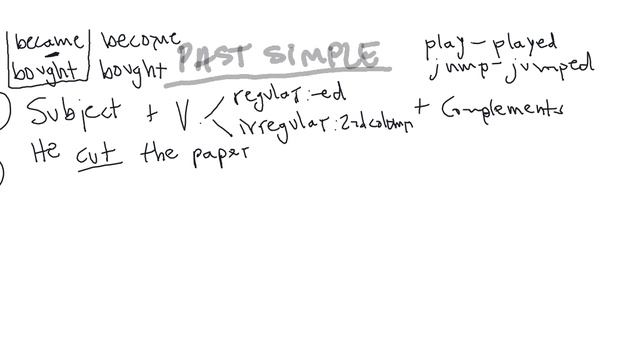 became become
bought bought
PAST SIMPLE
play - played
jump - jumped
Subject + V. regular: -ed
irregular: 2nd column + Complements
He cut the paper